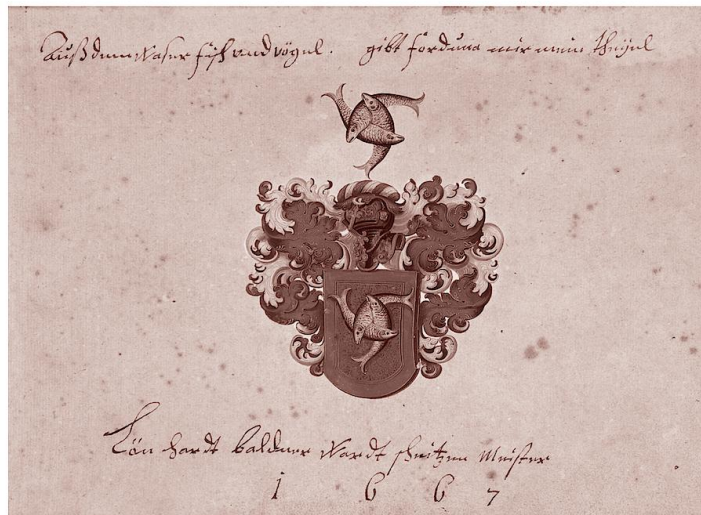 Auß dem waser fisch vnd vögel. gibt forduna mir mein theyel
Lön hardt baldner Wardt schützen Meister
1 6 6 7